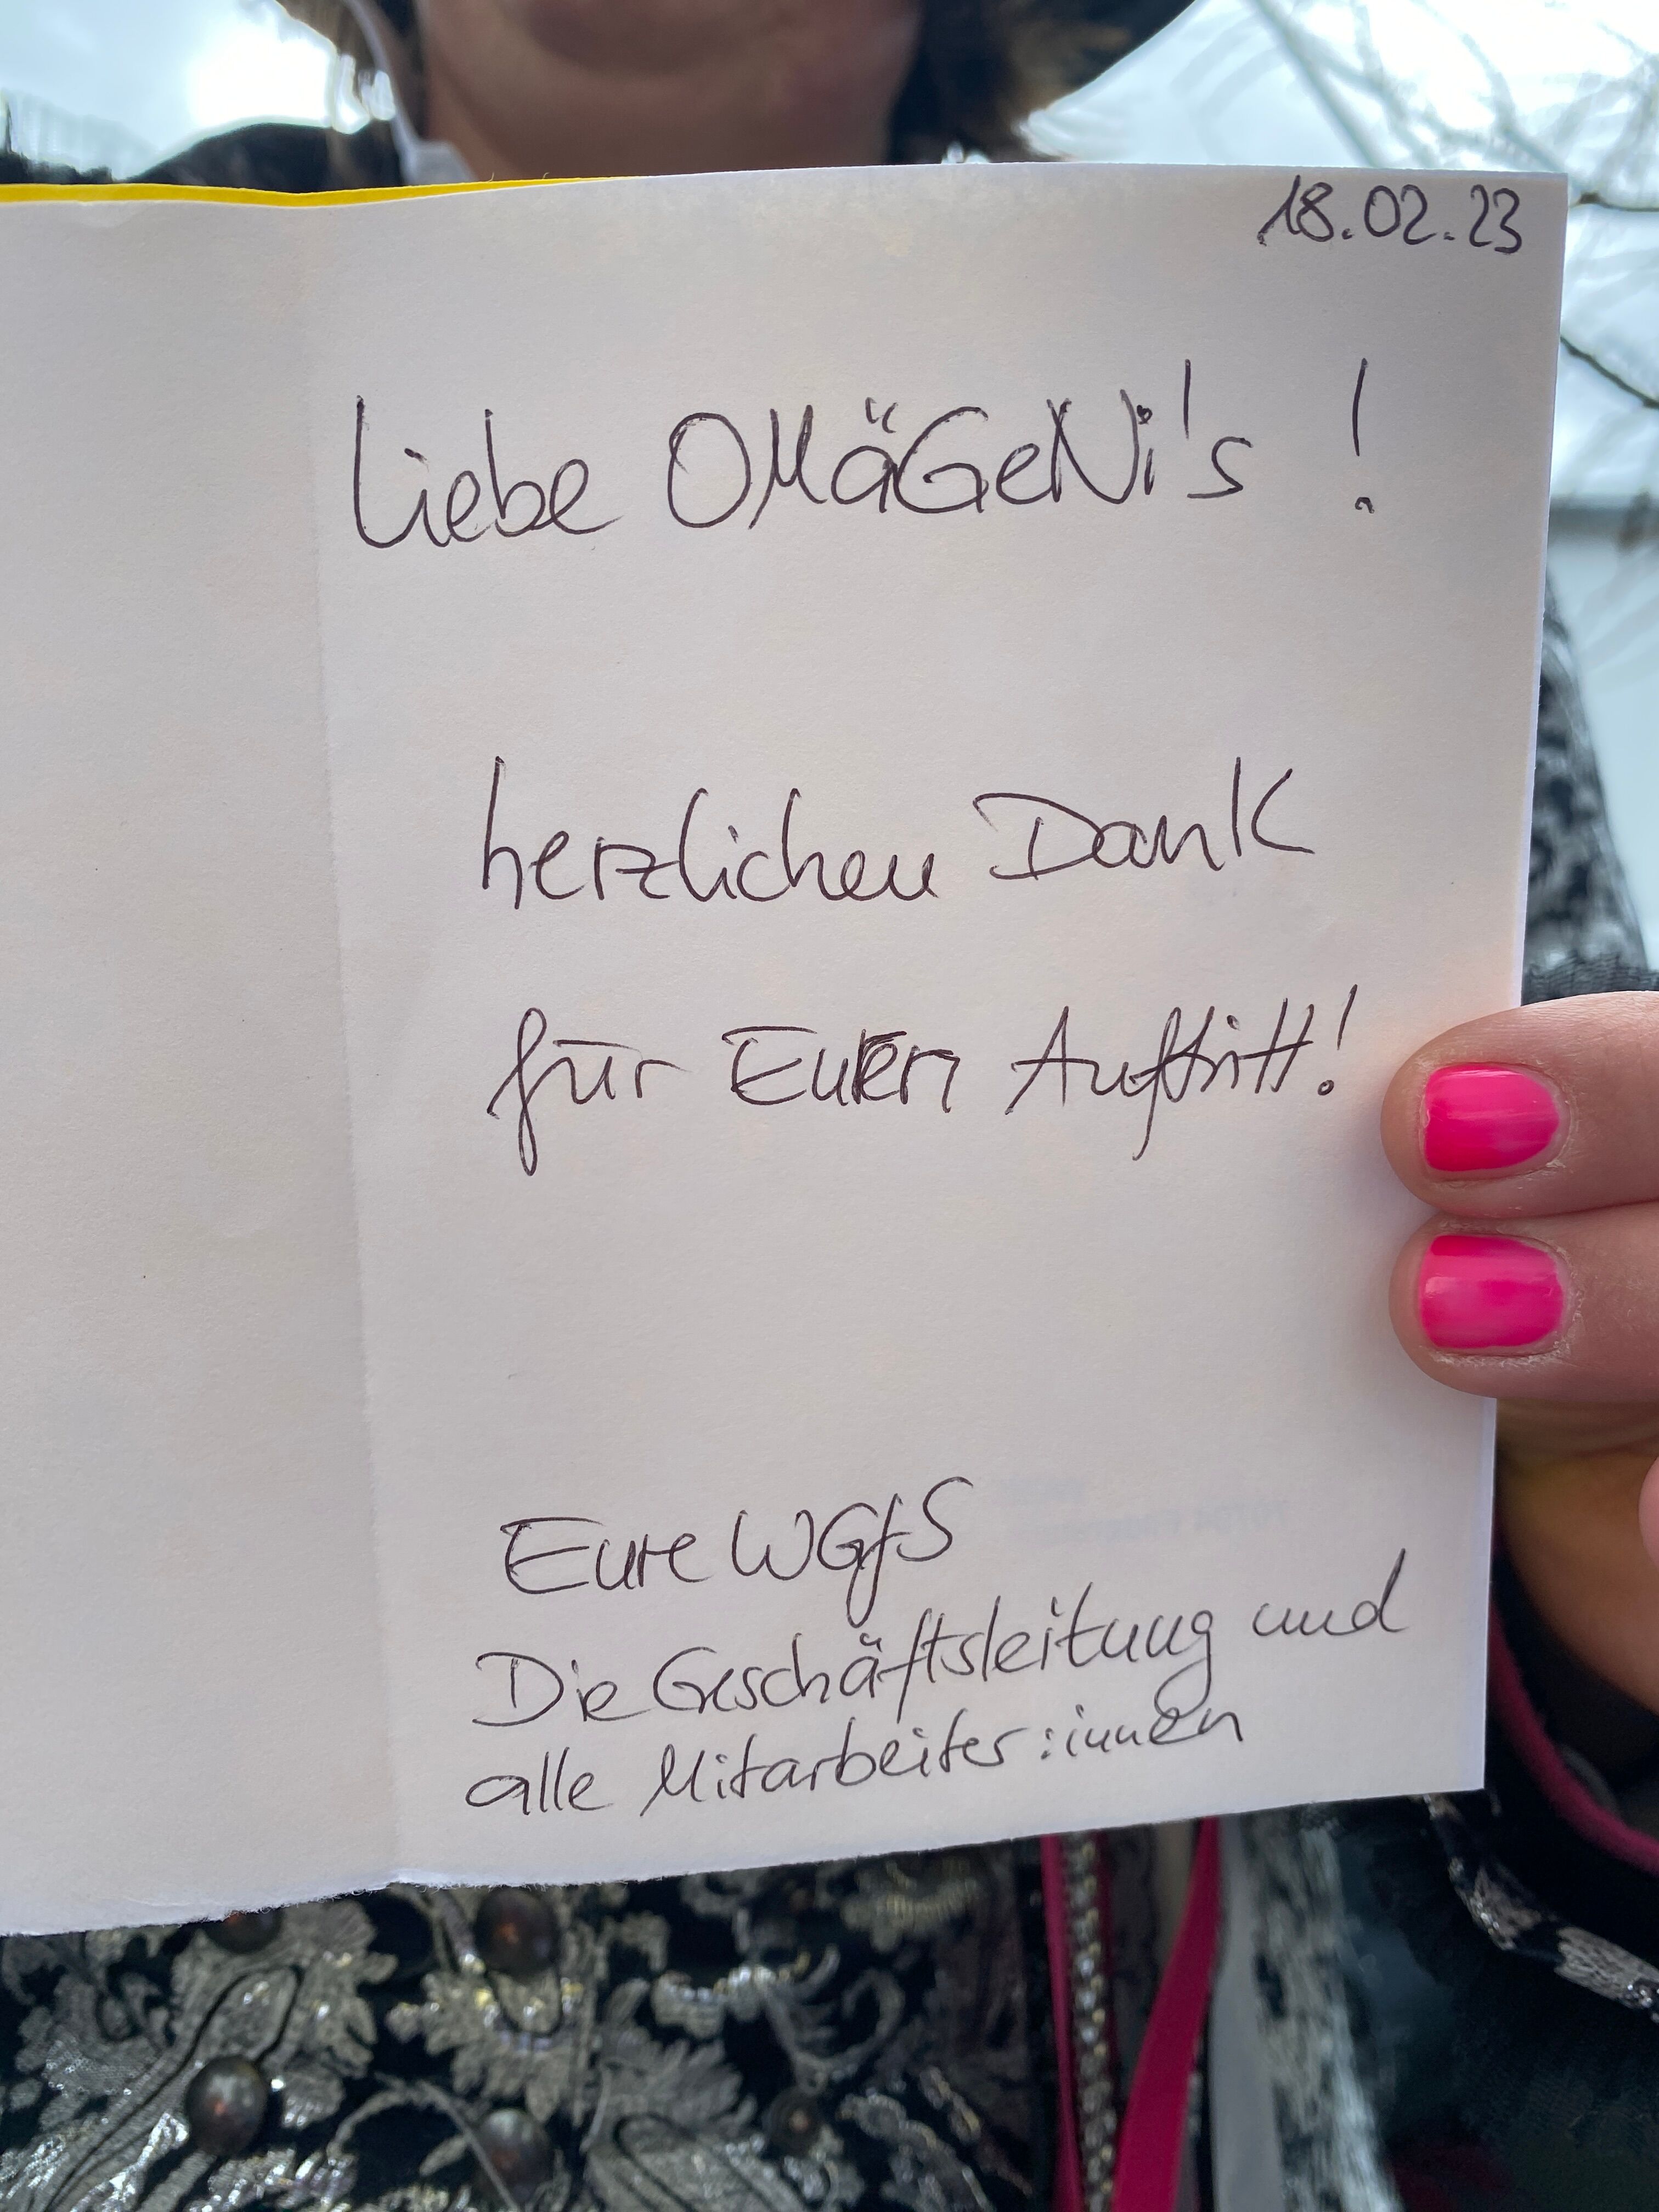 18.02.23
Liebe OMäGeNi's !
herzlichen Dank
für Euern Auftritt!
Eure WGfS
Die Geschäftsleitung und
alle Mitarbeiter:innen